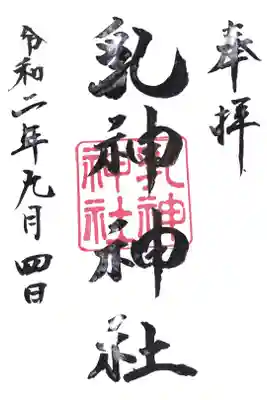 奉拝
乳神神社
乳神
神社
令和二年九月四日